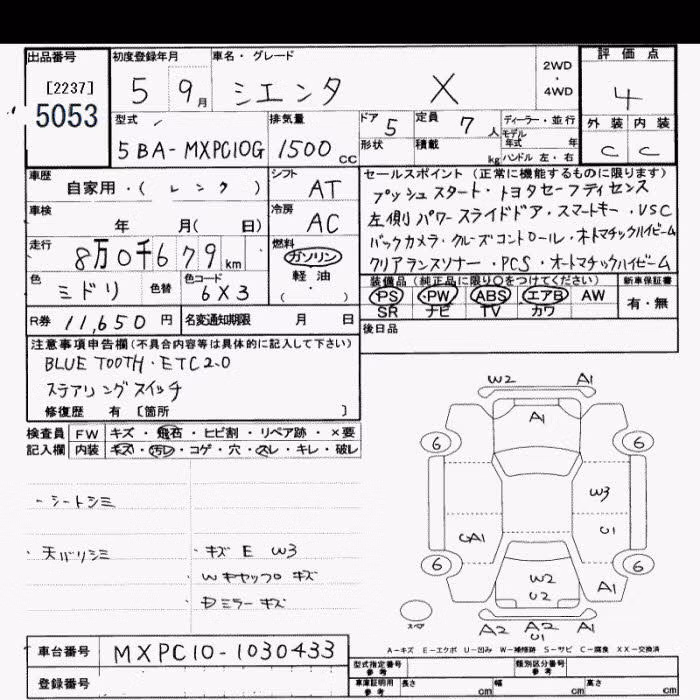 出品番号
[2237]
5053
初度登録年月
5 9月
車名・グレード
シエンタ X
2WD
・
4WD
評価点
4
外装 内装
C C
型式
5BA-MXPC10G
排気量
1500 CC
ドア 5
形状
定員 7 人
積載 kg
ディーラー・並行
モデル
年式 年
ハンドル 左・右
車歴
自家用・( レンタ )
シフト
AT
車検
年 月( 日)
冷房
AC
走行
8万0千679 km
燃料
ガソリン
軽油
( ・ )
色
ミドリ
色替
色コード
6X3
R券 11,650 円
名変通知期限 月 日
セールスポイント (正常に機能するものに限ります)
プッシュスタート・トヨタセーフティセンス
左側パワースライドドア・スマートキー・VSC
バックカメラ・クルーズコントロール・オートマチックハイビーム
クリアランスソナー・PCS・オートマチックハイビーム
装備品 (純正品に限り○をつけてください)
PS ・ PW ・ ABS ・ エアB ・ AW
SR ナビ TV カワ
新車保証書
有・無
後日品
注意事項申告欄(不具合内容等は具体的に記入して下さい)
BLUE TOOTH・ETC2.0
ステアリングスイッチ
修復歴 有 [箇所 ]
検査員
記入欄
FW キズ・飛石・ヒビ割・リペア跡・×要
内装 キズ・汚レ・コゲ・穴・スレ・キレ・破レ
-シートシミ
・天バリシミ
・キズ E W3
・Wキャップロ キズ
・Dミラーキズ
W2 A1
A1
6 6
W3
GA1 U1
6 6
W2
U2
A1
スペア
A2 A2 A1
U1
A-キズ E-エクボ U-凹み W-補修跡 S-サビ C-腐食 XX-交換済
車台番号
MXPC10-1030433
登録番号
型式指定番号
参考
類別区分番号
参考
車庫証明用
参考
長さ cm 幅 cm 高さ cm